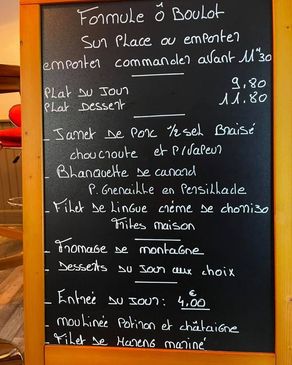 Formule Ô Boulot
Sur Place ou emporter
emporter commander avant 11ʰ30
Plat du Jour 9,80
Plat Dessert 11,80
- Jarret de Porc 1/2 sel Braisé
choucroute et P/vapeur
- Blanquette de canard
P. Grenaille en Persillade
- Filet de Lingue crème de chorizo
Frites maison
- Fromage de montagne
- Desserts du Jour aux choix
- Entrée du Jour : 4,00 €
- moulinée Potiron et châtaigne
- Filet de Hareng mariné